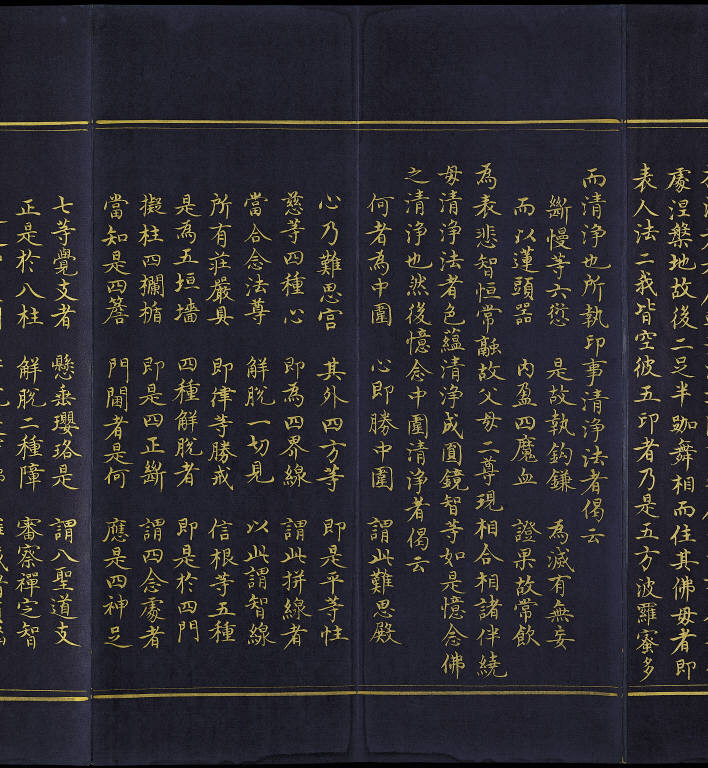 處涅槃地故後二足半跏舞相而住其佛母者即
表人法二我皆空彼五印者乃是五方波羅蜜多
而清淨也所執印事清淨法者偈云
斷慢等六愆　是故執鈎鎌　為滅有無妄
而以蓮頭器　內盈四魔血　證果故常飲
為表悲智恒常融故父母二尊現相合相諸伴繞
母清淨法者色蘊清淨成圓鏡智等如是憶念佛
之清淨也然後憶念中圍清淨者偈云
何者為中圍　心即勝中圍　謂此難思殿
心乃難思宮　其外四方等　即是平等性
慈等四種心　即為四界線　謂此拼線者
當合念法尊　解脫一切見　以此謂智線
所有莊嚴具　即偉等勝戒　信根等五種
是為五垣墻　四種解脫者　即是於四門
擬柱四欄楯　即是四正斷　謂四念處者
當知是四簷　門閫者是何　應是四神足
七等覺支者　懸垂瓔珞是　謂八聖道支
正是於八柱　解脫二種障　審察禪定智